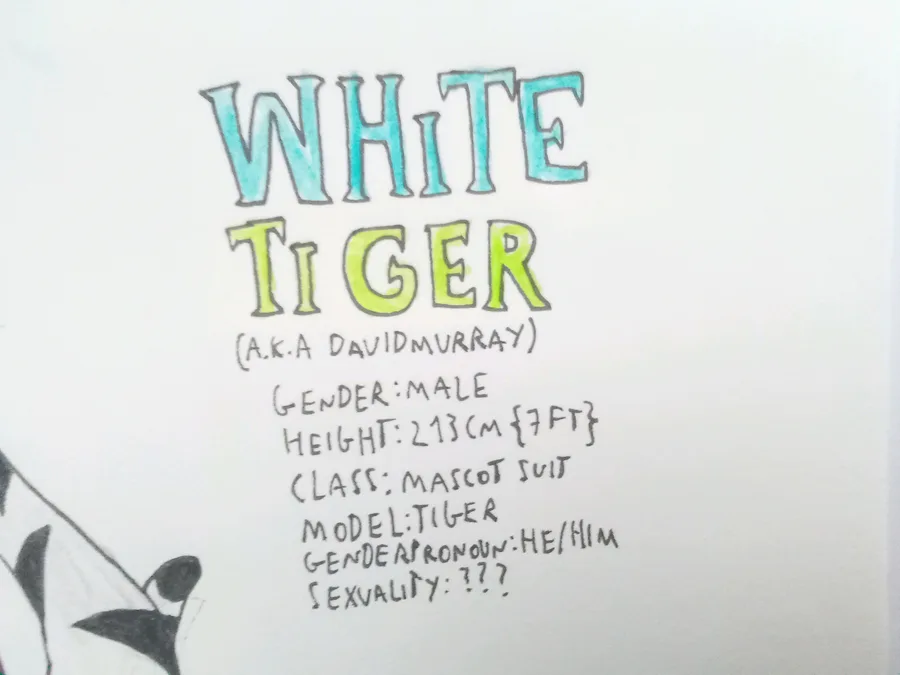 WHiTE
TiGER
(A.K.A DAVIDMURRAY)
GENDER:MALE
HEIGHT: 213CM {7FT}
CLASS: MASCOT SUIT
MODEL:TIGER
GENDERPRONOUN:HE/HIM
SEXUALITY: ???